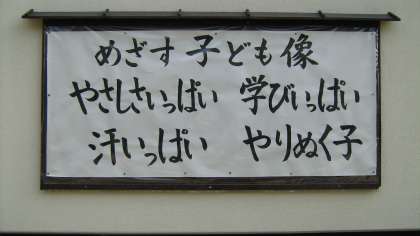 めざす子ども像
やさしさいっぱい 学びいっぱい
汗いっぱい やりぬく子